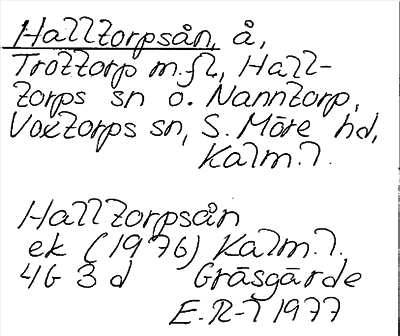 Halltorpsån, å,
Trottorp m.fl., Hall-
torps sn o. Nanntorp,
Voxtorps sn, S. Möre hd,
Kalm.l.
Halltorpsån
ek (1976) Kalm.l.
4G 3 d Gräsgårde
E.R-l 1977